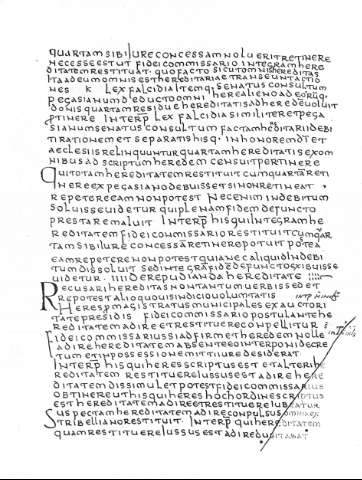 QUARTAM SIBI IURE CONCESSAM NOLUERIT RETINERE
NECESSE EST UT FIDEICOMMISSARIO INTEGRAM HERE
DITATEM RESTITUAT. QUO FACTO SICUT OMNIS HEREDITAS
ITA ET
NES K LEX FALCIDIA ITEMQ. SENATUS CONSULTUM
PEGASIANUM DEDUCTO OMNI HERE ALIENO
DONIS QUARTAM RESIDUE HEREDITATIS AD HEREDE UOLUIT
PTINERE INTERP LEX FALCIDIA SIMILITER E PEGA
SIANUM SENATUS CONSULTUM FACTAM HEREDITARII DEBI
TI RATIONEM ET SEPARATIS HISQ. IN HONOREM DI ET
AECLESIIS RELINQUUNTUR QUARTAM HEREDITATIS EX OM
NIBUS AD SCRIPTUM HEREDEM CENSUIT PERTINERE
QUI TOTAM HEREDITATEM RESTITUIT CUM QUARTA RETI
NERE EX PEGASIANO DEBUISSET SI NON RETINEAT
REPETERE EAM NON POTEST NEC ENIM INDEBITUM
SOLUISSE UIDETUR QUI PLENAM FIDEM DEFUNCTO
PRESTARE MALUIT INTERP HIS QUI INTEGRAM HE
REDITATEM FIDEICOMMISSARIO RESTITUIT CUM QAR
TAM SIBI IURE CONCESSA RETINERE POTUIT POTEA
EAM REPETERE NON POTEST QUIA NEC ALIQUID INDEBI
TUM DISSOLUIT SED INTEGRA FIDE DEFUNCTO EXIBUISSE
UIDETUR. IIII DE REPUDIANDA HEREDITATE
RECUSARI HEREDITAS NON TANTUM UERBIS SED ET
RE POTEST ALIO QUOUIS INDICIO UOLUMTATIS
HERES P MAGISTRATUS MUNICIPALES EX AUCTORI
TATE PRESIDIS FIDEICOMMISSARIO POSTULANTE HE
REDITATEM ADIRE ET RESTITUERE CONPELLITUR
FIDEICOMMISSARIUS SI ADFIRMET HEREDEM NOLLE
ADIRE HEREDITATEM ABSENTE EO INTERPONI DECRE
TUM ET IN POSSESSIONE MITTI IURE DESIDERAT
INTERP HIS QUI HERES SCRIPTUS EST ET ALTERI HE
REDITATEM RESTITUERE IUSSUS EST ADIRE HERE
DITATEM DISSIMULET POTEST FIDEICOMMISSARIUS
OBTINERE UT HIS QUI HERES HOC ORDINE SCRIPTUS
EST HEREDITATEM ADIRE ET RESTITUERE IUBEATUR
SUSPECTAM HEREDITATEM ADIRE CONPULSUS OMNIA EX
TRIBELLIANO RESTITUIT. INTERP QUI HEREDITATEM
QUAM RESTITUERE IUSSUS EST ADIRE